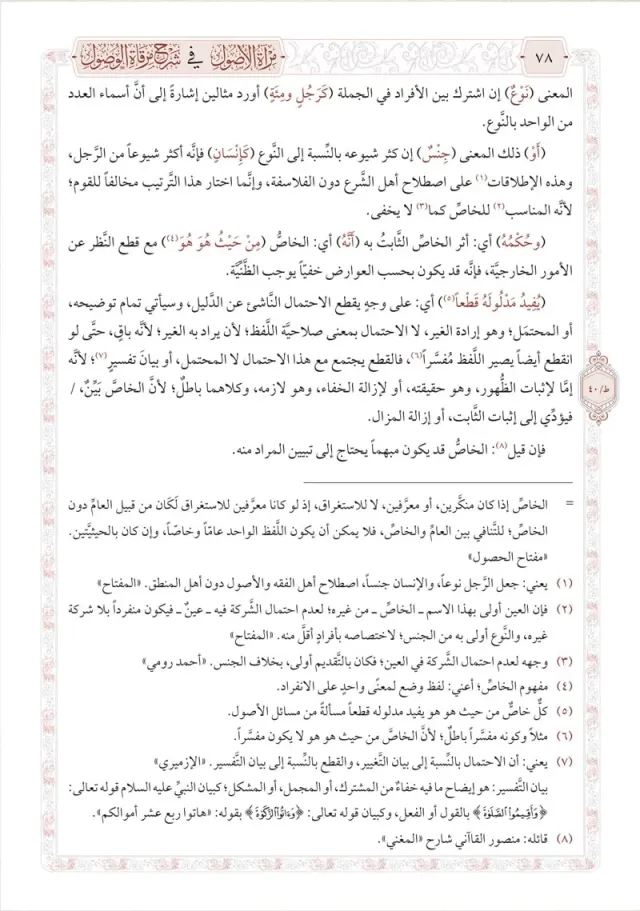 ٧٨
مرآة الأصول في شرح مرقاة الوصول
المعنى (نَوْعٌ) إن اشترك بين الأفراد في الجملة (كَرَجُلٍ ومِئَةٍ) أورد مثالين إشارةً إلى أنَّ أسماء العدد
من الواحد بالنَّوع.
(أَوْ) ذلك المعنى (جِنْسٌ) إن كثر شيوعه بالنِّسبة إلى النَّوع (كَإِنْسَانٍ) فإنَّه أكثر شيوعاً من الرَّجل،
وهذه الإطلاقات(١) على اصطلاح أهل الشَّرع دون الفلاسفة، وإنَّما اختار هذا التَّرتيب مخالفاً للقوم؛
لأنَّه المناسب(٢) للخاصِّ كما(٣) لا يخفى.
(وحُكْمُهُ) أي: أثر الخاصِّ الثَّابتُ به (أَنَّهُ) أي: الخاصُّ (مِنْ حَيْثُ هُوَ هُوَ(٤)) مع قطع النَّظر عن
الأمور الخارجيَّة، فإنَّه قد يكون بحسب العوارض خفيّاً يوجب الظَّنِّيَّة.
(يُفِيدُ مَدْلُولَهُ قَطْعاً(٥)) أي: على وجهٍ يقطع الاحتمال النَّاشئ عن الدَّليل، وسيأتي تمام توضيحه،
أو المحتمَل؛ وهو إرادة الغير، لا الاحتمال بمعنى صلاحيَّة اللَّفظ؛ لأن يراد به الغير؛ لأنَّه باقٍ، حتَّى لو
انقطع أيضاً يصير اللَّفظ مُفسَّراً(٦)، فالقطع يجتمع مع هذا الاحتمال لا المحتمل، أو بيانَ تفسيرٍ(٧)؛ لأنَّه
إمَّا لإثبات الظُّهور، وهو حقيقته، أو لإزالة الخفاء، وهو لازمه، وكلاهما باطلٌ؛ لأنَّ الخاصَّ بَيِّنٌ، /
ظ/٤٠
فيؤدِّي إلى إثبات الثَّابت، أو إزالة المزال.
فإن قيل(٨): الخاصُّ قد يكون مبهماً يحتاج إلى تبيين المراد منه.
= الخاصِّ إذا كان منكَّرين، أو معرَّفين، لا للاستغراق، إذ لو كانا معرَّفين للاستغراق لَكَان من قبيل العامِّ دون
الخاصِّ؛ للتَّنافي بين العامِّ والخاصِّ، فلا يمكن أن يكون اللَّفظ الواحد عامّاً وخاصّاً، وإن كان بالحيثيَّتين.
«مفتاح الحصول»
(١) يعني: جعل الرَّجل نوعاً، والإنسان جنساً، اصطلاح أهل الفقه والأصول دون أهل المنطق. «المفتاح»
(٢) فإن العين أولى بهذا الاسم ـ الخاصِّ ـ من غيره؛ لعدم احتمال الشَّركة فيه ـ عينٌ ـ فيكون منفرداً بلا شركة
غيره، والنَّوع أولى به من الجنس؛ لاختصاصه بأفرادٍ أقلَّ منه. «المفتاح»
(٣) وجهه لعدم احتمال الشَّركة في العين؛ فكان بالتَّقديم أولى، بخلاف الجنس. «أحمد رومي»
(٤) مفهوم الخاصِّ؛ أعني: لفظ وضع لمعنًى واحدٍ على الانفراد.
(٥) كلُّ خاصٍّ من حيث هو هو يفيد مدلوله قطعاً مسألةٌ من مسائل الأصول.
(٦) مثلاً وكونه مفسَّراً باطلٌ؛ لأنَّ الخاصَّ من حيث هو هو لا يكون مفسَّراً.
(٧) يعني: أن الاحتمال بالنِّسبة إلى بيان التَّغيير، والقطع بالنِّسبة إلى بيان التَّفسير. «الإزميري»
بيان التَّفسير: هو إيضاح ما فيه خفاءٌ من المشترك، أو المجمل، أو المشكل؛ كبيان النبيِّ عليه السلام قوله تعالى:
﴿وَأَقِيمُوا۟ ٱلصَّلَوٰةَ﴾ بالقول أو الفعل، وكبيان قوله تعالى: ﴿وَءَاتُوا۟ ٱلزَّكَوٰةَ﴾ بقوله: «هاتوا ربع عشر أموالكم».
(٨) قائله: منصور القاآني شارح «المغني».